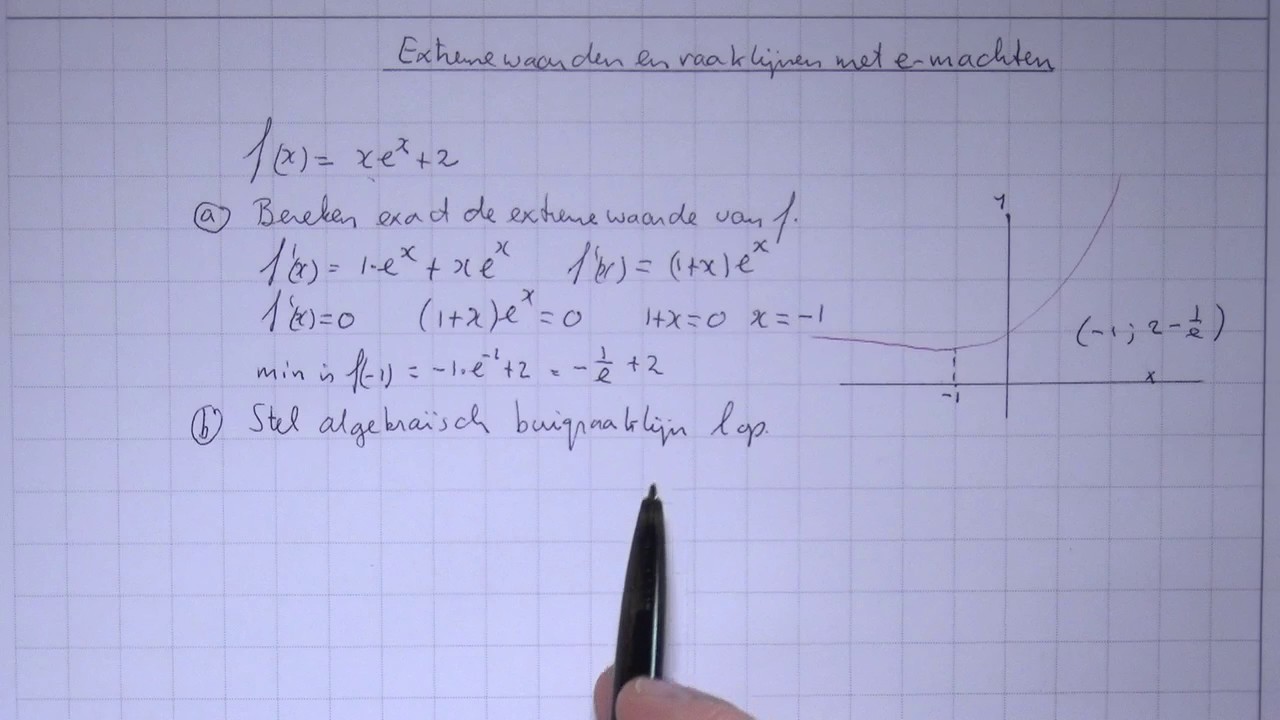 Extreme waarden en raaklijnen met e-machten
f(x) = xeˣ + 2
ⓐ Bereken exact de extreme waarde van f.
f'(x) = 1·eˣ + xeˣ f'(x) = (1+x)eˣ
f'(x)=0 (1+x)eˣ = 0 1+x=0 x = -1
min is f(-1) = -1·e⁻¹+2 = -1/e + 2
ⓑ Stel algebraïsch buigraaklijn l op.
y
(-1; 2 - 1/e)
x
-1